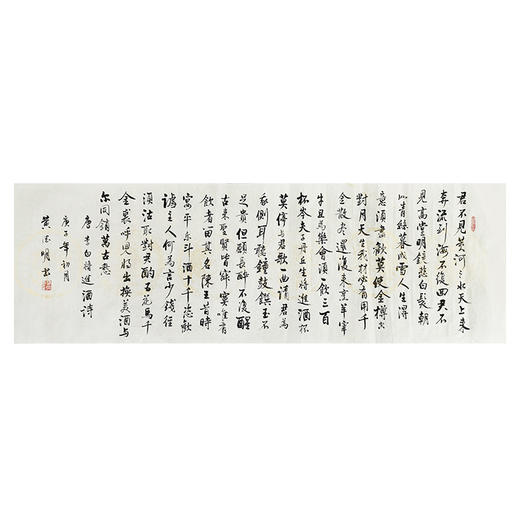 君不見黃河之水天上来
奔流到海不復回君不
見高堂明鏡悲白髮朝
如青絲暮成雪人生得
意須盡歡莫使金樽空
對月天生我材必有用千
金散盡還復来烹羊宰
牛且為樂會須一飲三百
杯岑夫子丹丘生將進酒杯
莫停与君歌一曲請君為
我側耳聽鐘鼓饌玉不
足貴但願長醉不復醒
古来聖賢皆寂寞唯有
飲者留其名陳王昔時
宴平樂斗酒十千恣歡
謔主人何為言少錢徑
須沽取對君酌五花馬千
金裘呼児將出換美酒与
尔同銷萬古愁
唐李白將進酒詩
庚子年初月
黄明書